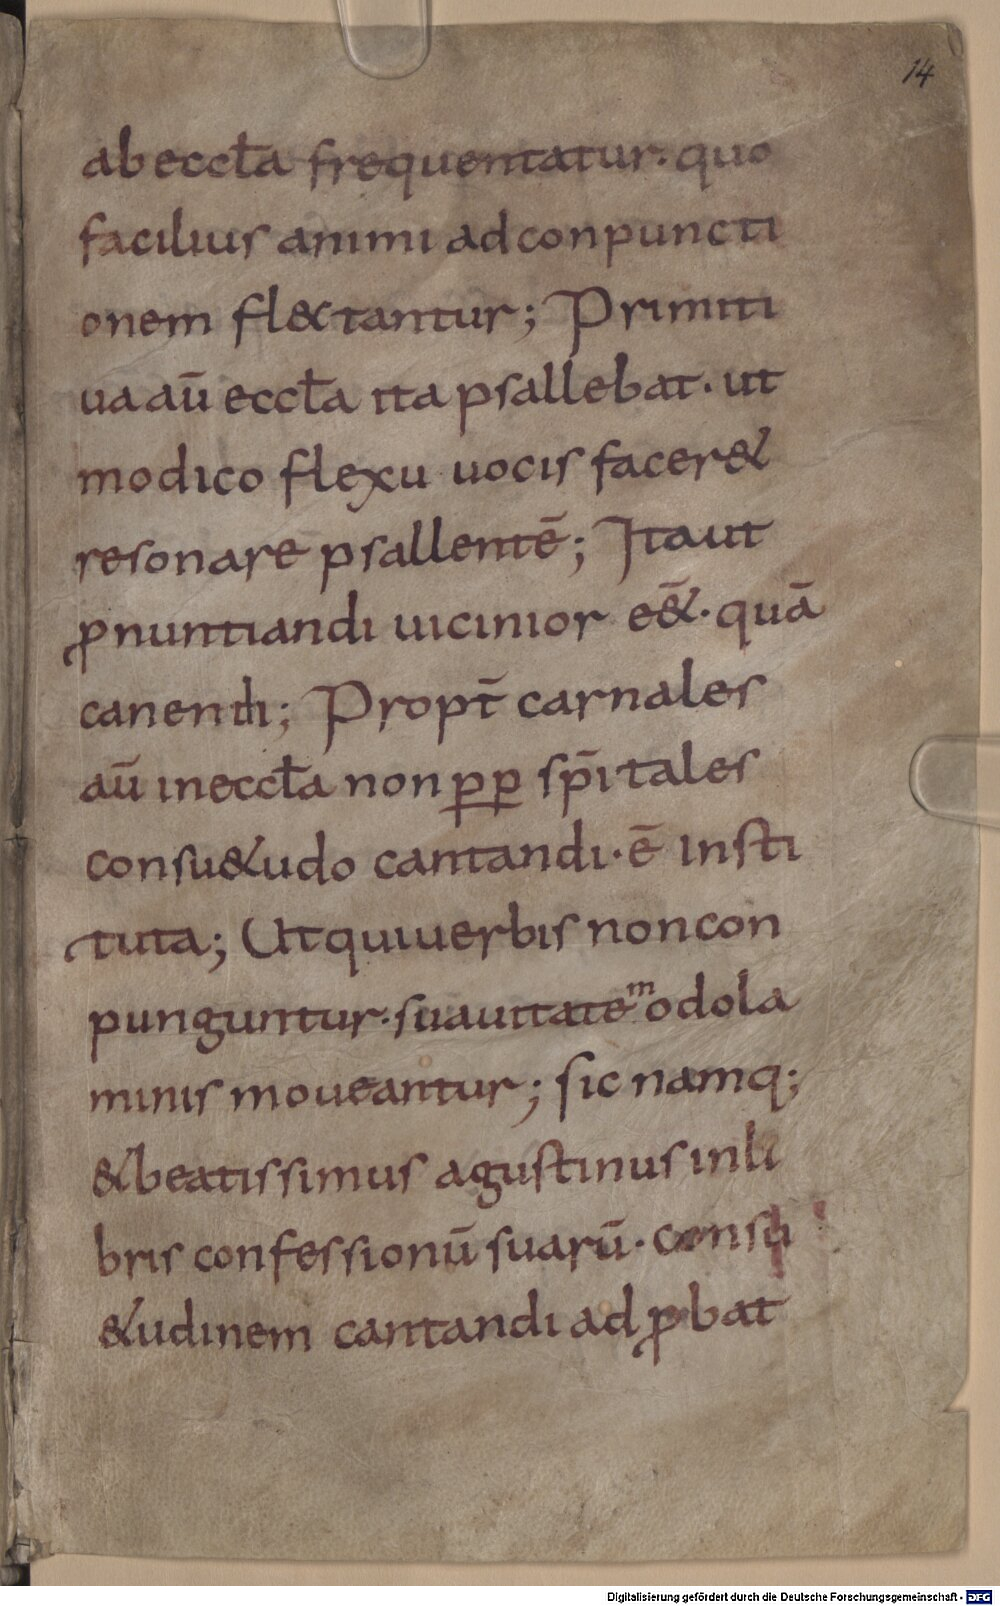 14
ab eccła frequentatur. quo
facilius animi ad conpuncti
onem fl&tantur; Primiti
ua aū eccła ita psallebat. ut
modico flexu uocis facer&
resonare psallentē; Ita ut
ꝓnuntiandi uicinior ēē&. quā
canendi; Propt̄ carnales
aū in eccła non ꝑꝑ sp̄itales
consu&udo cantandi. ē insti
tuta; Ut qui uerbis non con
punguntur. suauitate modola
minis moueantur; sic namq;
& beatissimus agustinus in li
bris confessionū suarū. consu
&udinem cantandi adꝓbat
Digitalisierung gefördert durch die Deutsche Forschungsgemeinschaft - DFG